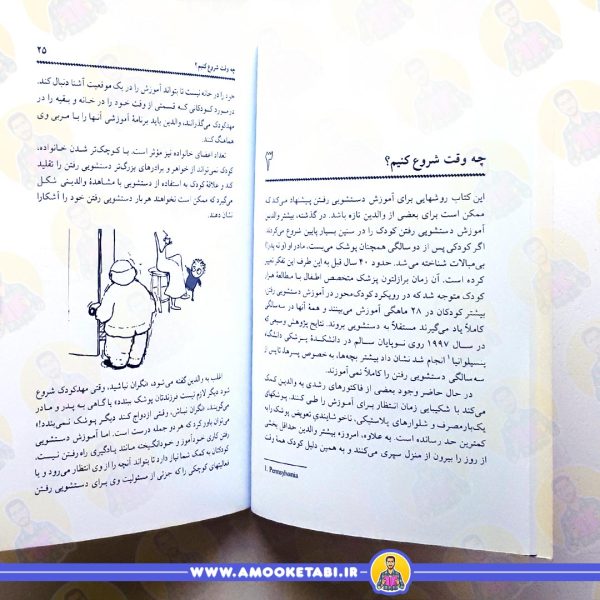 ۳
چه وقت شروع کنیم؟
این کتاب روشهایی برای آموزش دستشویی رفتن پیشنهاد می‌کند که
ممکن است برای بعضی از والدین تازه باشد. در گذشته، بیشتر والدین
آموزش دستشویی رفتن کودک را در سنین بسیار پایین شروع می‌کردند.
اگر کودکی پس از دو سالگی همچنان پوشک می‌بست، مادر او (و نه پدر!)
بی‌مبالات شناخته می‌شد. حدود ۴۰ سال قبل به این طرف این تفکر تغییر
کرده است. آن زمان برازلتون پوشک متخصص اطفال با مطالعهٔ هزار
کودک متوجه شد که در رویکرد کودک‌محور در آموزش دستشویی رفتن،
بیشتر کودکان در ۲۸ ماهگی آموزش می‌بینند و همهٔ آنها در سه سالگی
کاملاً یاد می‌گیرند مستقلاً به دستشویی بروند. نتایج پژوهش وسیعی که
در سال ۱۹۹۷ روی نوپایان سالم در دانشکدهٔ پزشکی دانشگاه
پنسیلوانیا۱ انجام شد نشان داد بیشتر بچه‌ها، به خصوص پسرها، تا پس از
سه سالگی دستشویی رفتن را کاملاً نمی‌آموزند.
در حال حاضر وجود بعضی از فاکتورهای رشدی به والدین کمک
می‌کند با شکیبایی زمان انتظار برای آموزش را طی کنند. پوشکهای
یک‌بارمصرف و شلوارهای پلاستیکی، ناخوشایندی تعویض پوشک را به
کمترین حد رسانده است. به علاوه، امروزه بیشتر والدین حداقل بخشی
از روز را بیرون از منزل سپری می‌کنند و به همین دلیل کودک همهٔ وقت
1. Pennsylvania
چه وقت شروع کنیم؟ ۲۵
خود را در خانه نیست تا بتواند آموزش را در یک موقعیت آشنا دنبال کند.
در مورد کودکانی که قسمتی از وقت خود را در خانه و بقیه را در
مهدکودک می‌گذرانند، والدین باید برنامهٔ آموزشی آنها را با مربی وی
هماهنگ کند.
تعداد اعضای خانواده نیز مؤثر است. با کوچک‌تر شدن خانواده،
کودک نمی‌تواند از خواهر و برادرهای بزرگ‌تر دستشویی رفتن را تقلید
کند و علاقهٔ کودک به استفاده از دستشویی با مشاهدهٔ والدینی شکل
می‌گیرد که ممکن است نخواهند هر بار دستشویی رفتن خود را آشکارا
نشان دهند.
اغلب به والدین گفته می‌شود، نگران نباشید، وقتی مهدکودک شروع
شود دیگر لازم نیست فرزندتان پوشک ببندد؛ یا گاهی به پدر و مادر
می‌گویند، نگران نباش، وقتی ازدواج کند دیگر پوشک نمی‌بندد!؛
می‌توان باور کرد که هر دو جمله درست است. اما آموزش دستشویی
رفتن کاری خودآموز و خودانگیخته مانند یادگیری راه رفتن نیست.
کودکتان به کمک شما نیاز دارد تا بتواند آنچه را از وی انتظار می‌رود و یا
فعالیتهای کوچکی را که جزئی از مسئولیت وی برای دستشویی رفتن
WWW.AMOOKETABI.IR